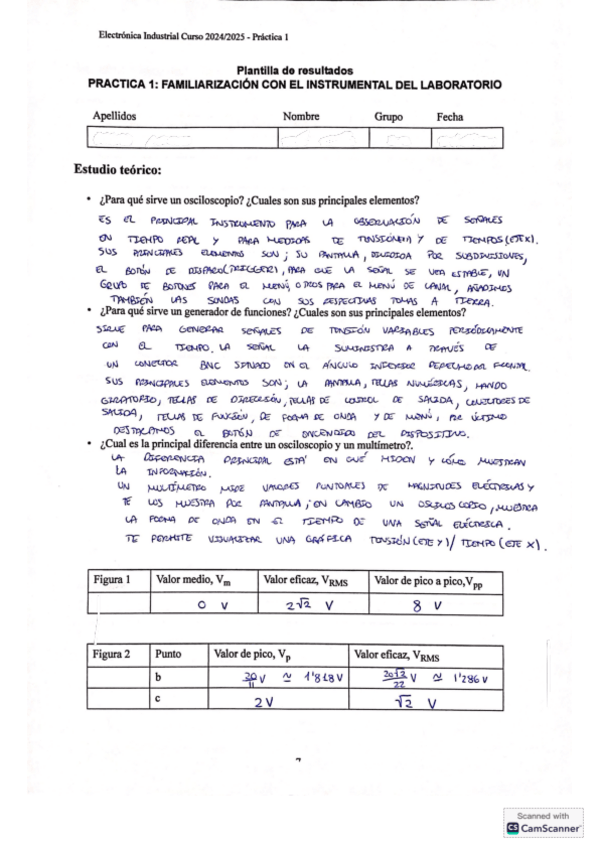 Electrónica Industrial Curso 2024/2025 - Práctica 1
Plantilla de resultados
PRACTICA 1: FAMILIARIZACIÓN CON EL INSTRUMENTAL DEL LABORATORIO
Apellidos Nombre Grupo Fecha
Estudio teórico:
• ¿Para qué sirve un osciloscopio? ¿Cuales son sus principales elementos?
ES EL PRINCIPAL INSTRUMENTO PARA LA OBSERVACIÓN DE SEÑALES
EN TIEMPO REAL Y PARA MEDIDAS DE TENSIÓN(EJE Y) Y DE TIEMPOS (EJE X).
SUS PRINCIPALES ELEMENTOS SON; SU PANTALLA, DIVIDIDA POR SUBDIVISIONES,
EL BOTÓN DE DISPARO(TRIGGER), PARA QUE LA SEÑAL SE VEA ESTABLE, UN
GRUPO DE BOTONES PARA EL MENÚ, OTROS PARA EL MENÚ DE CANAL, AÑADIMOS
TAMBIÉN LAS SONDAS CON SUS RESPECTIVAS TOMAS A TIERRA.
• ¿Para qué sirve un generador de funciones? ¿Cuales son sus principales elementos?
SIRVE PARA GENERAR SEÑALES DE TENSIÓN VARIABLES PERIÓDICAMENTE
CON EL TIEMPO. LA SEÑAL LA SUMINISTRA A TRAVÉS DE
UN CONECTOR BNC SITUADO EN EL ÁNGULO INFERIOR DERECHO DEL FRONTAL.
SUS PRINCIPALES ELEMENTOS SON; LA PANTALLA, TECLAS NUMÉRICAS, MANDO
GIRATORIO, TECLAS DE DIRECCIÓN, TECLAS DE CONTROL DE SALIDA, CONECTORES DE
SALIDA, TECLAS DE FUNCIÓN, DE FORMA DE ONDA Y DE MENÚ, POR ÚLTIMO
DESTACAMOS EL BOTÓN DE ENCENDIDO DEL DISPOSITIVO.
• ¿Cual es la principal diferencia entre un osciloscopio y un multímetro?.
LA DIFERENCIA PRINCIPAL ESTÁ EN QUÉ MIDEN Y CÓMO MUESTRAN
LA INFORMACIÓN.
UN MULTÍMETRO MIDE VALORES PUNTUALES DE MAGNITUDES ELÉCTRICAS Y
TE LOS MUESTRA POR PANTALLA; EN CAMBIO UN OSCILOSCOPIO, MUESTRA
LA FORMA DE ONDA EN EL TIEMPO DE UNA SEÑAL ELÉCTRICA.
TE PERMITE VISUALIZAR UNA GRÁFICA TENSIÓN (EJE Y) / TIEMPO (EJE X).
Figura 1 Valor medio, Vm Valor eficaz, VRMS Valor de pico a pico, Vpp
0 V 2√2 V 8 V
Figura 2 Punto Valor de pico, Vp Valor eficaz, VRMS
b 20/11 V ≃ 1'818 V 20√2/22 V ≃ 1'286 V
c 2 V √2 V
Scanned with
CS CamScanner